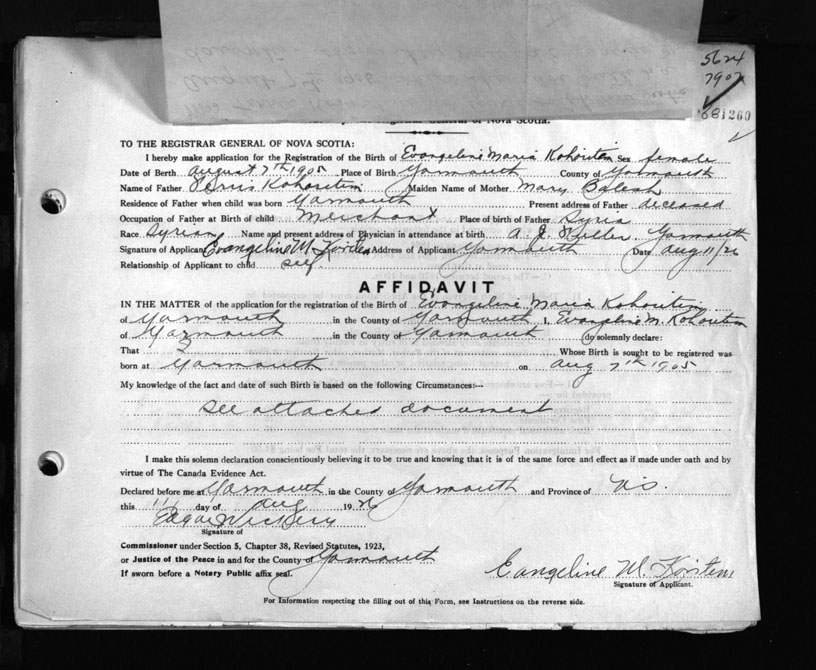 5624
7907
681260
Registrar General of Nova Scotia.
TO THE REGISTRAR GENERAL OF NOVA SCOTIA:
I hereby make application for the Registration of the Birth of Evangeline Maria Kohoutin Sex female
Date of Birth august 7th 1905 Place of Birth Yarmouth County of Yarmouth
Name of Father Kohoutin Maiden Name of Mother Mary
Residence of Father when child was born Yarmouth Present address of Father deceased
Occupation of Father at Birth of child Merchant Place of birth of Father Syria
Race Syrian Name and present address of Physician in attendance at birth A. J. Fuller, Yarmouth
Signature of Applicant Evangeline M. Address of Applicant Yarmouth Date Aug 11/26
Relationship of Applicant to child self
AFFIDAVIT
IN THE MATTER of the application for the registration of the Birth of Evangeline Maria Kohoutin
of Yarmouth in the County of Yarmouth I, Evangeline M. Kohoutin
of Yarmouth in the County of Yarmouth do solemnly declare:
That I Whose Birth is sought to be registered was
born at Yarmouth on Aug 7th 1905
My knowledge of the fact and date of such Birth is based on the following Circumstances:—
See attached document
I make this solemn declaration conscientiously believing it to be true and knowing that it is of the same force and effect as if made under oath and by
virtue of The Canada Evidence Act.
Declared before me at Yarmouth in the County of Yarmouth and Province of N.S.
this 11 day of Aug 1926
Edgar
Signature of
Commissioner under Section 5, Chapter 38, Revised Statutes, 1923,
or Justice of the Peace in and for the County of Yarmouth
If sworn before a Notary Public affix seal.
Evangeline M.
Signature of Applicant.
For Information respecting the filling out of this Form, see Instructions on the reverse side.